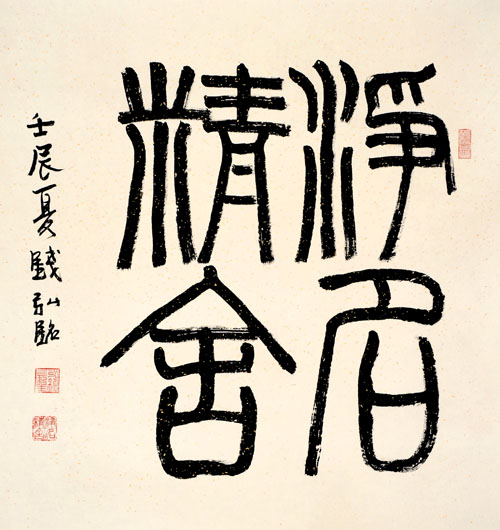 淨名
精舍
壬辰夏錢弘銘